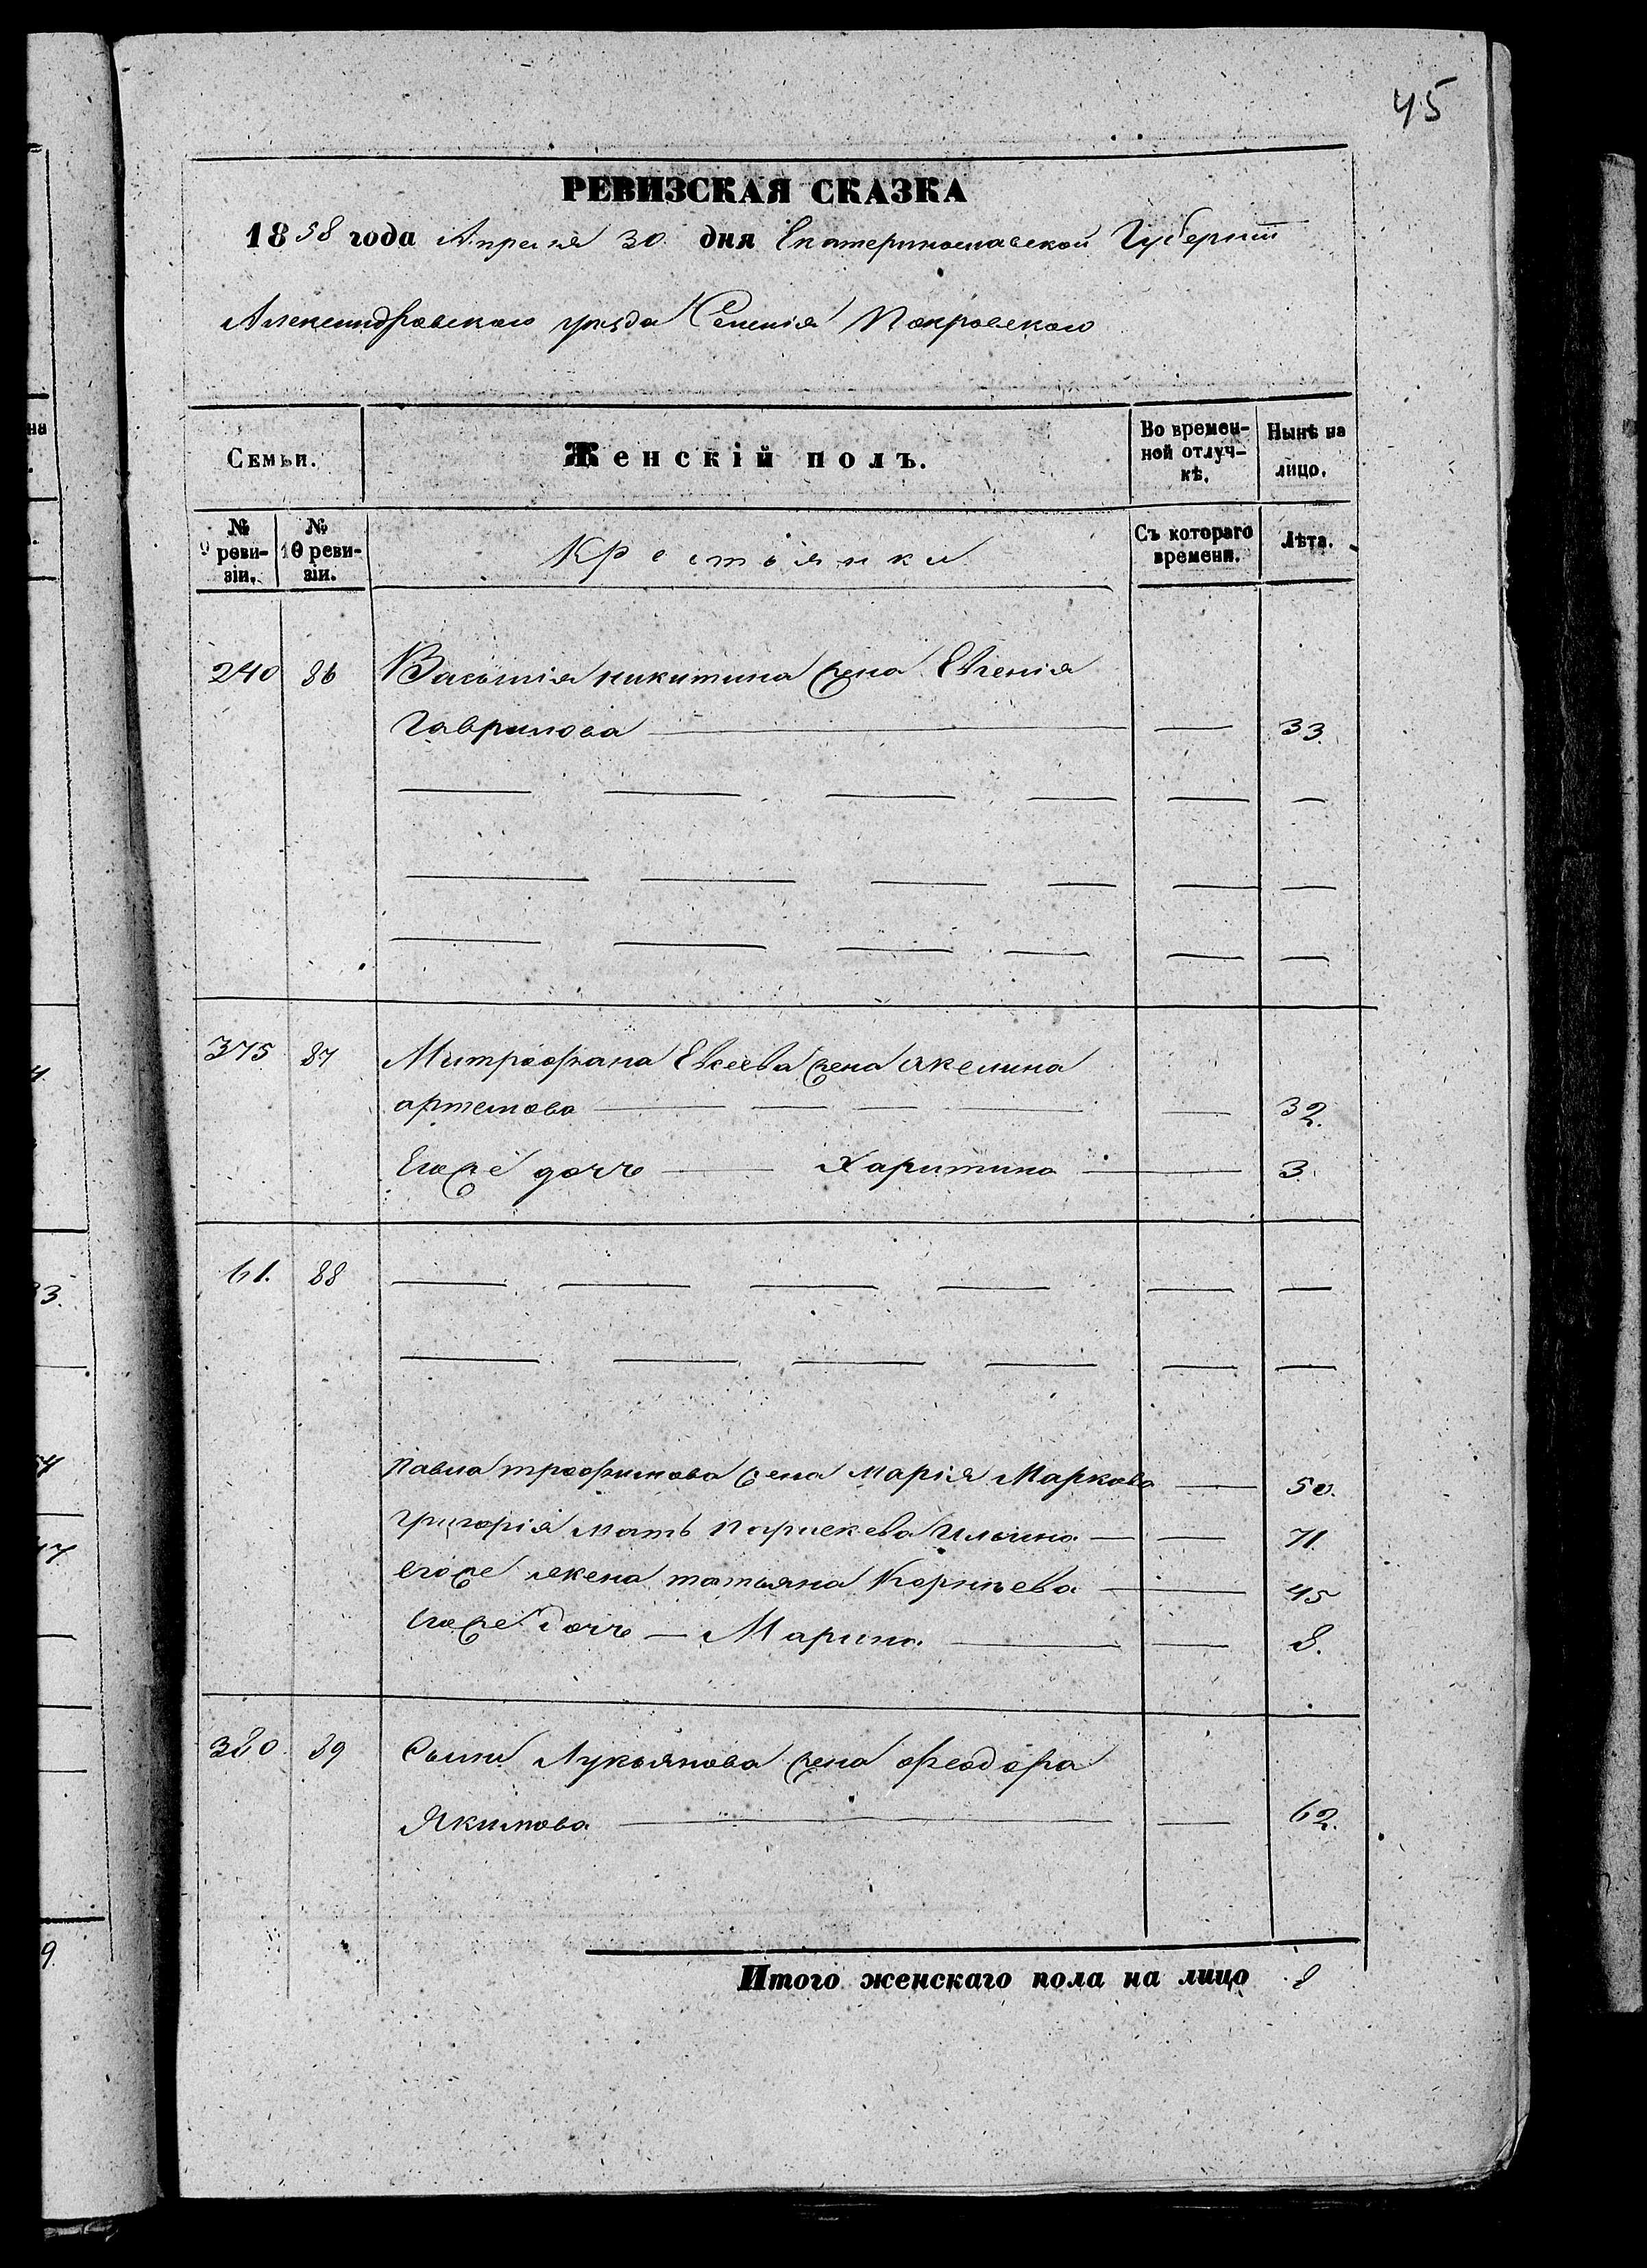 45
РЕВИЗСКАЯ СКАЗКА
1858 года Апреля 30. дня Екатеринославской Губернии
Александровского уезда Селенія Покровского
Семьи.
Женскій полъ.
Во времен-
ной отлуч-
кѣ.
Нынѣ на
лицо.
№
9 реви-
зіи.
№
10 реви-
зіи.
Крестьянки
Съ котораго
времени.
Лѣта.
240 86 Василія никитина жена Евгенія
Гаврилова — — 33.
375 87 Митрофана Евсеева жена акелина
артемова — — 32.
Егоже дочь — Харитина — 3.
61. 88
Павла трофимова жена марія Маркова — 50.
григорія мать параскева Ильина — — 71.
егоже жена татьяна Корнѣева — 45
Егоже дочь — Марина — — 8.
380. 89 Лукьянова жена феодора
Якимова — — 62.
Итого женскаго пола на лицо 8